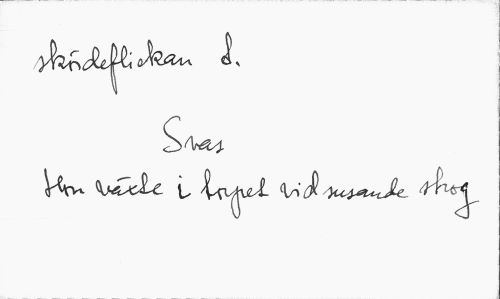 skördeflickan d.
Svas
Hon växte i torpet vid susande skog